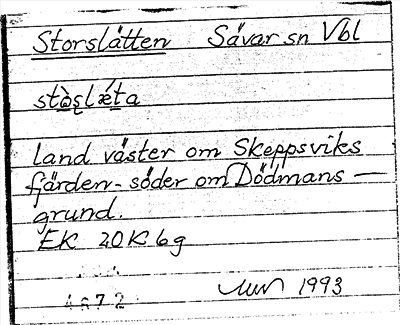 Storslätten Sävar sn Vbl
stɷ̀ʂlǽta
land väster om Skeppsviks
fjärden - söder om Dödmans —
grund.
EK 20K 6g
1993